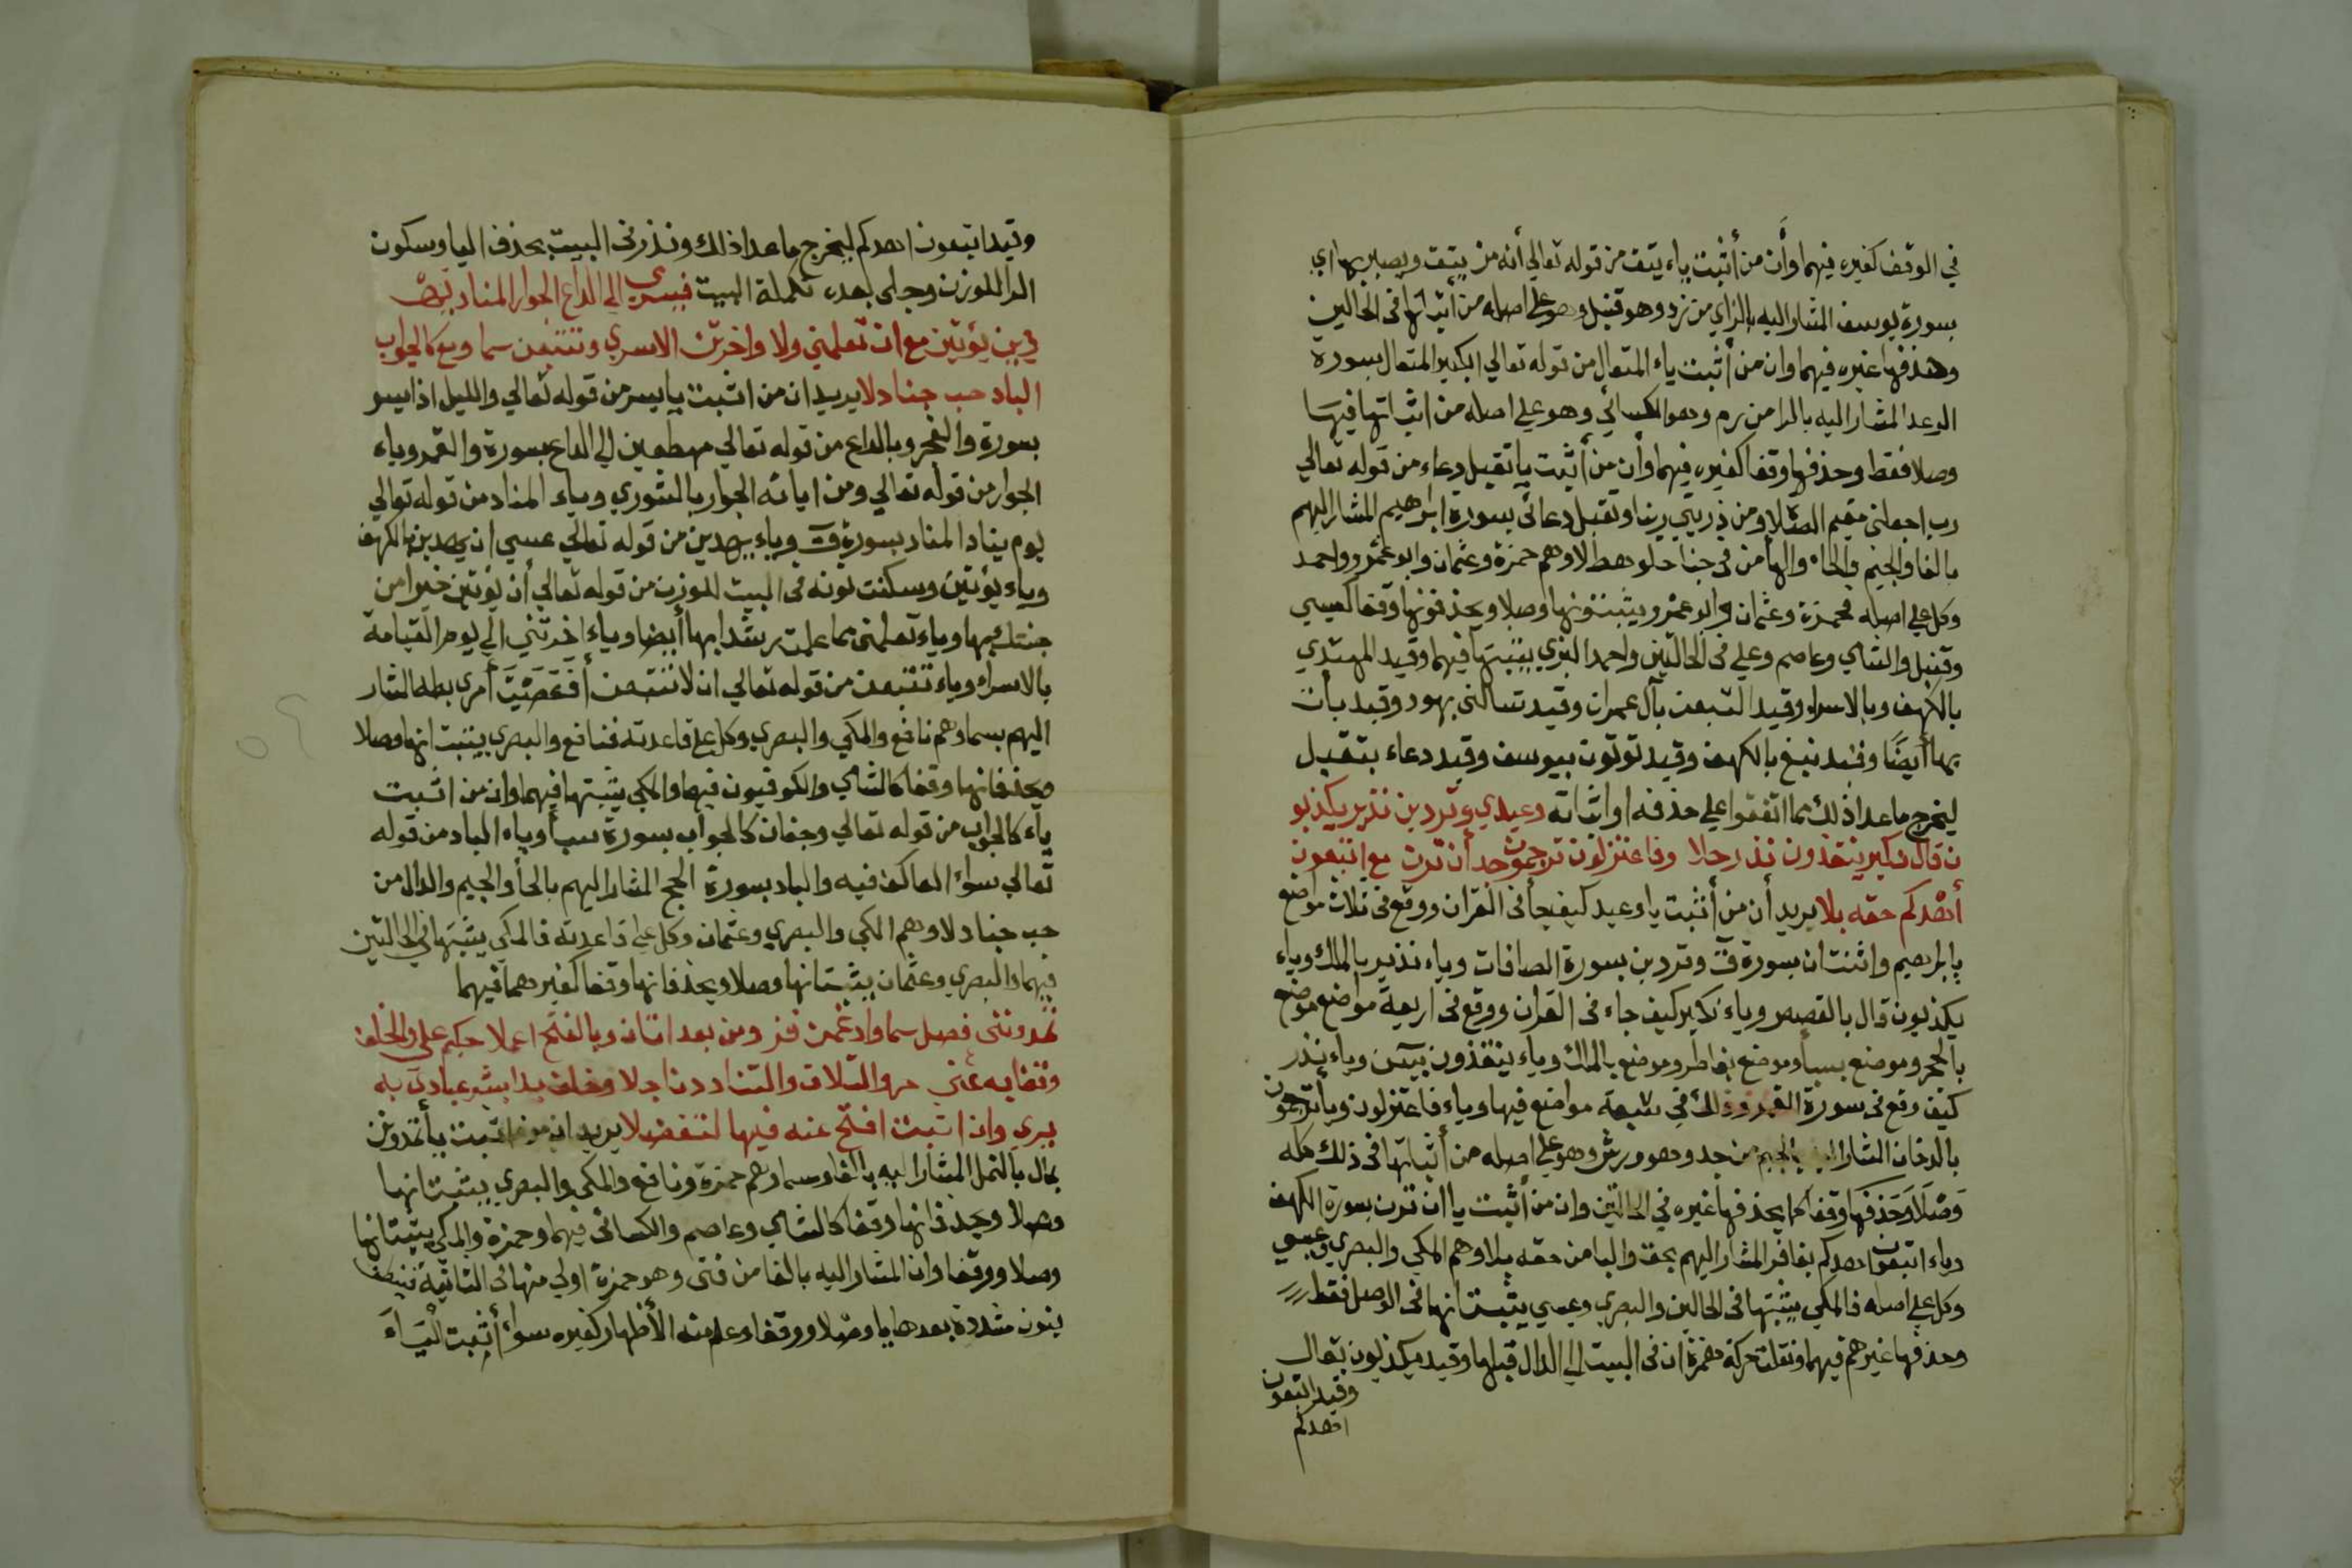 في الوقف كغيره فيهما وأن من أثبت ياء يتق من قوله تعالى أنه من يتق ويصبر بها اي
بسورة يوسف المشار اليه بالزاي من زد وهو قنبل وهو على اصله من أثباتها في الحالين
وحذفها غيره فيهما وان من أثبت ياء المتعال من قوله تعالى الكبير المتعال بسورة
الرعد المشار اليه بالدا من رم وهو الكسائي وهو على اصله من اثباتها فيها
وصلا فقط وحذفها وقفا كغيره فيهما وأن من أثبت يا تقبل دعاء من قوله تعالى
رب اجعلنى مقيم الصلاة ومن ذريتي ربنا وتقبل دعائى بسورة ابراهيم المشار اليهم
بالفا والجيم والحاء والهأ من في جنا حلو هط لا وهم حمزة وعثمان وابو عمرو واحمد
وكل على اصله فحمزة وعثمان وابو عمرو يثبتونها وصلا ويحذفونها وقفا كعيسي
وقنبل والشامي وعاصم وعلي في الحالتين واحمد البزي يثبتها فيهما وقيد المهتدي
بالكهف وبالاسراء وقيد اتبعن بآل عمران وقيد تسالنى بهود وقيد بأن
بها أيضًا وقيد نبغ بالكهف وقيد توتون بيوسف وقيد دعاء بتقبل
ليخرج ماعدا ذلك مما اتفقوا على حذفه او اثباته وعيدي وتردين نذير يكذبو
ن قال نكير ينقذون نذر حلا وفاعتزلون ترجمون جد أن ترن مع اتبعون
أهدكم حقه بلا يريد أن من أثبت يا وعيد كيف جأ فى القرآن ووقع فى ثلاث مواضع
بابراهيم واثنتان بسورة ق وتردين بسورة الصافات وياء نذير بالملك وياء
يكذبون قال بالقصص وياء نكير كيف جاء فى القرآن ووقع فى اربعة مواضع موضع
بالحج وموضع بسبأ وموضع بفاطر وموضع بالملك وياء ينقذون بيس وياء نذر
كيف وقع فى سورة القمر وذلك في ستة مواضع فيها وياء فاعتزلون ويا ترجمون
بالدخان المشار اليه بالجيم من جد وهو ورش وهو على اصله من أثباتها فى ذلك كله
وَصْلاً وَحذفها وقفا كما يحذفها غيره في الحالتين وان من أثبت يا ان ترن بسورة الكهف
وياء اتبعون اهدكم بغافر المشار اليهم بحق والبا من حقه بلا وهم المكي والبصري وعيسي
وكل على اصله فالمكي يثبتها فى الحالين والبصرى وعيسي يثبتانها فى الوصل فقط
وحذفها غيرهم فيهما ونقلت حركة همزة ان فى البيت الى الدال قبلها وقيد يكذبون بقال
وقيد اتبعون
اهدكم
وقيد اتبعون اهدكم ليخرج ما عدا ذلك ونذر فى البيت بحذف اليا وسكون
الرا للوزن وجلى بعده تكملة البيت فيسرى الى الداع الجوار المناد يهـ
دين يؤتين مع ان تعلمني ولا واخرتن الاسري وتتبعن سما ومع كالجواب
الباد حب جنا دلا يريد ان من اثبت يا يسر من قوله تعالى والليل اذا يسر
بسورة والفجر ويا الداع من قوله تعالى مهطعين الى الداع بسورة والقمر وياء
الجوار من قوله تعالى ومن اياته الجوار بالشورى وياء المناد من قوله تعالى
يوم يناد المناد بسورة ق وياء يهدين من قوله تعالى عسي ان يهدين بالكهف
وياء يؤتين وسكنت نونه فى البيت للوزن من قوله تعالى أن يؤتين خيرا من
جنتك بها وياء تعلمنى مما علمت رشدا بها أيضا وياء اخرتني الى يوم القيامة
بالاسراء وياء تتبعن من قوله تعالى ان لا تتبعن أفعَصَيْتَ أمري بطه المشار
اليهم بسما وهم نافع والمكي والبصري وكل على قاعدته فنافع والبصري يثبتانها وصلا
ويحذفانها وقفا كالشامي والكوفيون فيهما والمكي يثبتها فيهما وان من اثبت
ياء كالجواب من قوله تعالى وجفان كالجواب بسورة سبأ وياء الباد من قوله
تعالى سواء العاكف فيه والباد بسورة الحج المشار اليهم بالحأ والجيم والدال من
حب جنا دلا وهم المكي والبصري وعثمان وكل على قاعدته فالمكي يثبتها في الحالتين
فيهما والبصري وعثمان يثبتانها وصلا ويحذفانها وقفا كغيرهما فيهما
تمدوننى فصل سما وادغمن فز ومن بعد اتان وبالفتح اعملا حكيم على والخلف
وقفا به عني حروالتلاق والتناد دنا جلا وخلف بدا بشر عبادى به
يرى وان اثبت افتح عنه فيها لتفضلا يريد ان من اثبت يا تمدونن
بمال بالنمل المشار اليه بالفا وسما وهم حمزة ونافع والمكي والبصري يثبتانها
وصلا ويحذفانها وقفا كالشامي وعاصم والكسائى فيهما وحمزة والمكي يثبتانها
وصلا ووقفا وان المشار اليه بالفا من فتى وهو حمزة اولي منها فى الثانية فينطق
بنون مشددة بعدها يا وصْلا ووقفا وعلم منه الأظهار كغيره سواء أثبت الْيَـاءَ